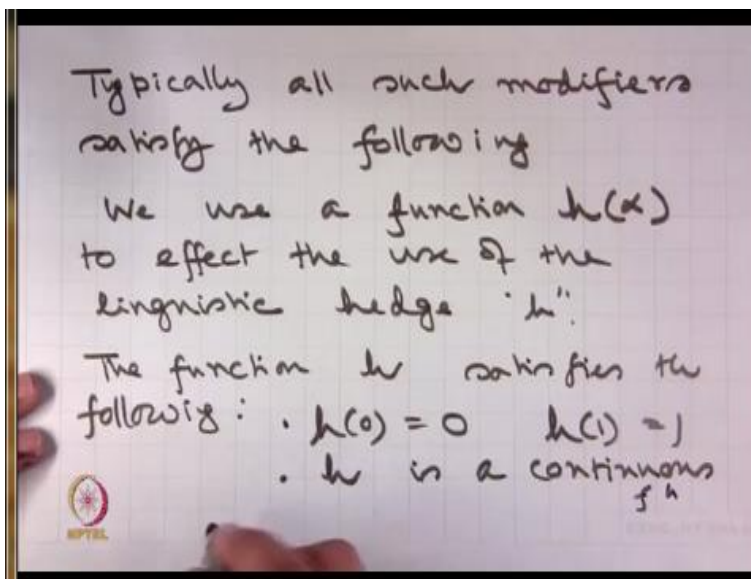 Typically all such modifiers
satisfy the following
We use a function h(α)
to effect the use of the
linguistic hedge "h".
The function h satisfies the
followig : . h(0) = 0 h(1) = 1
. h is a continuous
fn
NPTEL